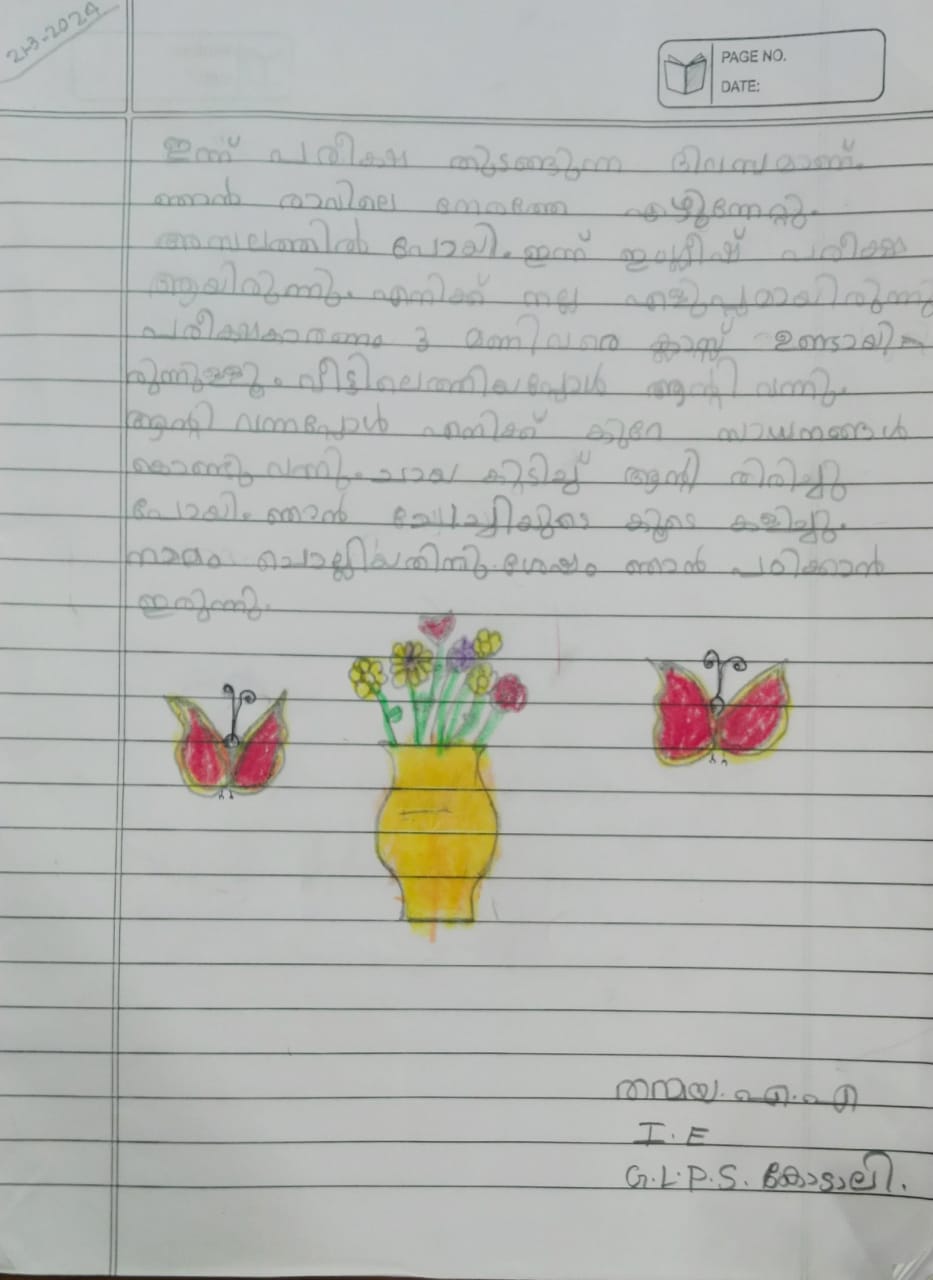 21-3-2024
PAGE NO.
DATE:
ഇന്ന് പരീക്ഷ തുടങ്ങുന്ന ദിവസമാണ്.
ഞാൻ രാവിലെ നേരത്തെ എഴുന്നേറ്റു.
അമ്പലത്തിൽ പോയി. ഇന്ന് ഇംഗ്ലീഷ് പരീക്ഷ
ആയിരുന്നു. എനിക്ക് നല്ല എളുപ്പമായിരുന്നു
പരീക്ഷകാരണം 3 മണിവരെ ക്ലാസ്സ് ഉണ്ടായി
രുന്നുള്ളൂ. വീട്ടിലെത്തിയപ്പോൾ ആന്റി വന്നു.
ആന്റി വന്നപ്പോൾ എനിക്ക് കുറേ സാധനങ്ങൾ
കൊണ്ടു വന്നു. ചായ കുടിച്ച് ആന്റി തിരിച്ചു
പോയി. ഞാൻ ചേച്ചിയുടെ കൂടെ കളിച്ചു.
നാമം ചൊല്ലിയതിനു ശേഷം ഞാൻ പഠിക്കാൻ
ഇരുന്നു.
തന്മയ. എ. എ
I. E
G.L.P.S. കോടാലി.